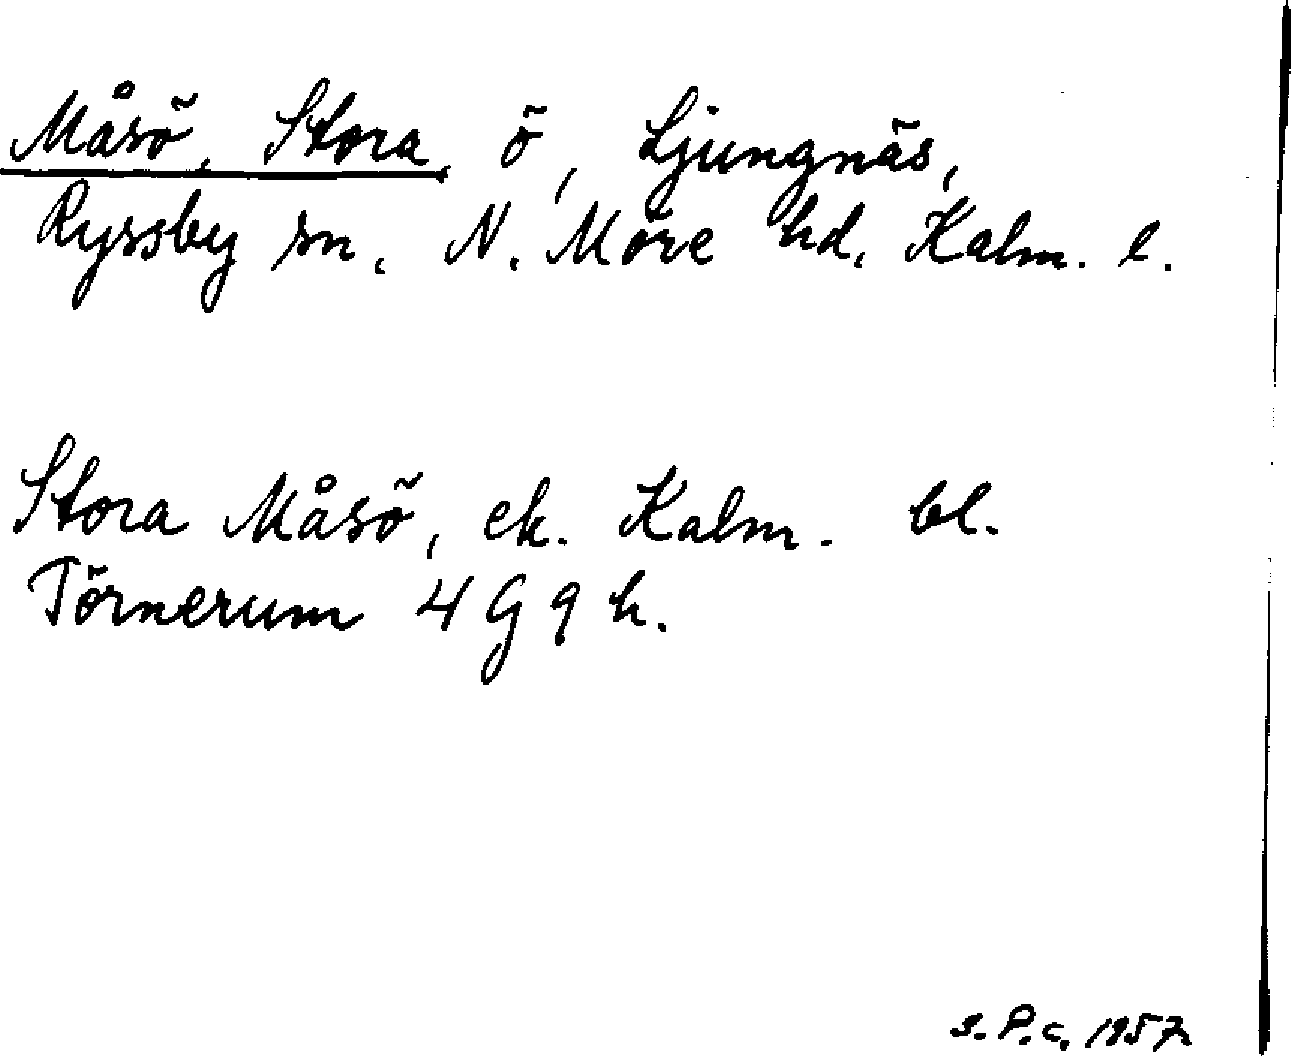 Måsö, Stora, ö, Ljungnäs,
Ryssby sn, N. Möre hd, Kalm. l.
Stora Måsö, ek. Kalm. bl.
Törnerum 4 G 9 h.
S.P.C. 1957